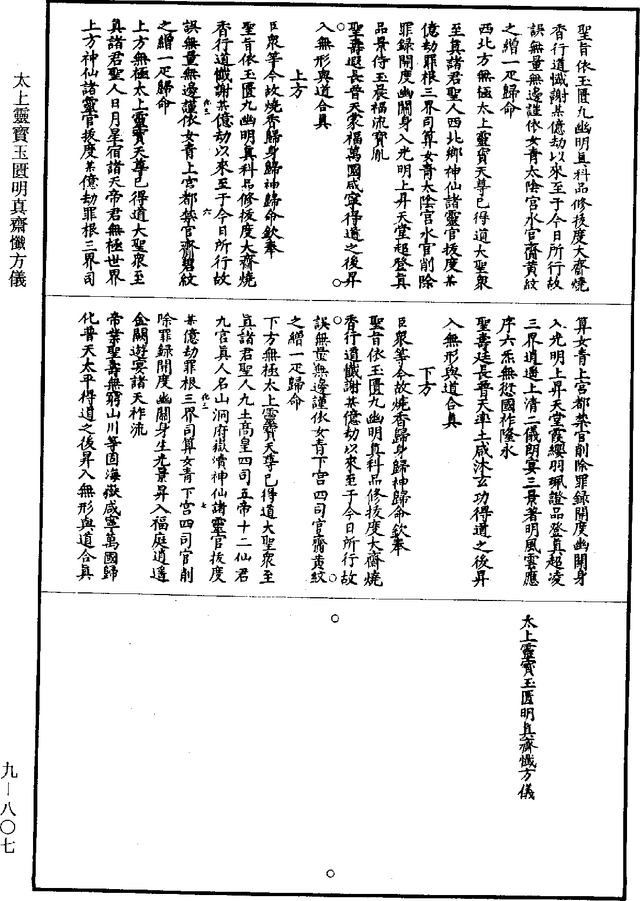 聖旨依玉匱九幽明眞科品修拔度大齋燒
香行道懺謝某億劫以來至于今日所行故
誤無量無邊謹依女青太陰宮水官齎黃紋
之繒一疋歸命
西北方無極太上靈寶天尊已得道大聖衆
至眞諸君聖人西北鄉神仙諸靈官拔度某
億劫罪根三界司算女青太陰宮水官削除
罪錄開度幽關身入光明上昇天堂超登眞
品景侍玉晨福流寶胤
聖壽遐長晉天家福萬國咸寧得道之後昇
入無形與道合眞
上方
臣衆等今故燒香歸身歸神歸命欽奉
聖旨依玉匱九幽明眞科品修拔度大齋燒
香行道懺謝某億劫以來至于今日所行故
誤無量無邊謹依女青上宮都禁官齋碧紋
之繒一疋歸命
上方無極太上靈寶天尊已得道大聖衆至
眞諸君聖人日月星宿諸天帝君無極世界
上方神仙諸靈官拔度某億劫罪根三界司
算女青上宮都禁官削除罪錄開度幽關身
入光明上昇天堂霞纓羽珮證品登眞超凌
三界逍遙上清二儀朗宴三景著明風雲應
序六炁無愆國祚隆永
聖壽延長普天率土咸沐玄功得道之後昇
入無形與道合眞
下方
臣衆等今故燒香歸身歸神歸命欽奉
聖旨依玉匱九幽明眞科品修拔度大齋燒
香行道懺謝某億劫以來至于今日所行故
誤無量無邊謹依女青下宮四司官齋黃紋
之繒一疋歸命
下方無極太上靈寶天尊已得道大聖衆至
眞諸君聖人九土高皇四司五帝十二仙君
九宮眞人名山洞府嶽瀆神仙諸靈官拔度
某億劫罪根三界司算女青下宮四司官削
除罪錄開度幽關身生光景昇入福庭逍遙
金闕遊宴諸天祚流
帝業聖壽無窮山川等固海嶽咸寧萬國歸
化普天太平得道之後昇入無形與道合眞
太上靈寶玉匱明眞齋懺方儀
太上靈寶玉匱明真齋懺方儀
九—八〇七